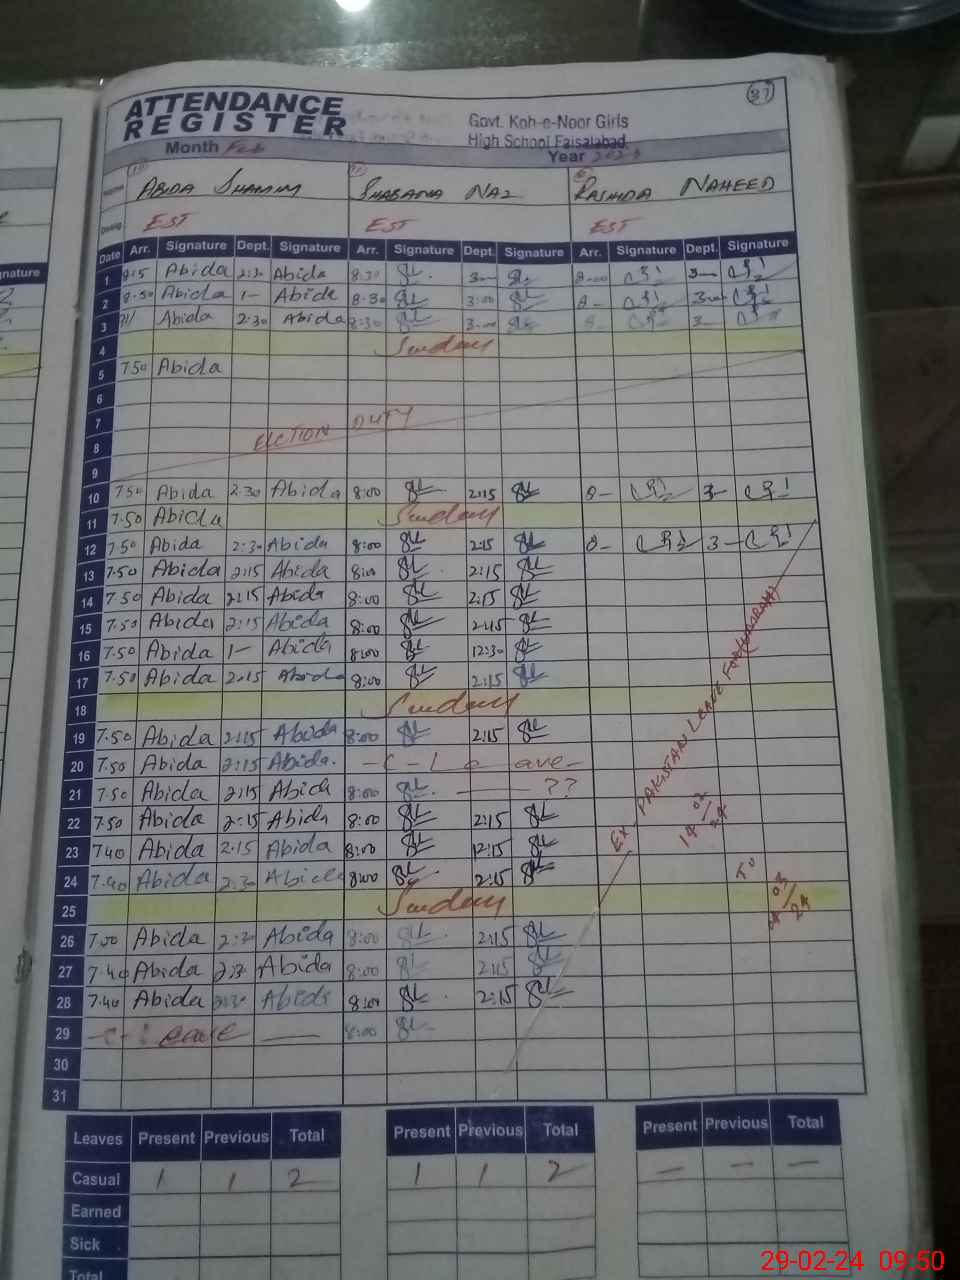 37
ATTENDANCE
REGISTER
Govt. Koh-e-Noor Girls
High School Faisalabad.
Month Feb Year
Name ABIDA SHAMIM SHABANA NAZ RASHIDA NAHEED
EST EST EST
Date Arr. Signature Dept. Signature Arr. Signature Dept. Signature Arr. Signature Dept. Signature
1 Abida 2:30 Abida 8:30
2 8.50 Abida 1- Abida 8.30 3:00 8-
3 Abida 2.30 Abida 8:30 3-00 8- 3-
4 Sunday
5 750 Abida
6
7
8 ELCTION DUTY
9
10 750 Abida 2.30 Abida 8:00 2:15 8- 3-
11 7.50 Abida Sunday
12 7.50 Abida 2:30 Abida 8:00 2:15 8- 3-
13 7.50 Abida 2:15 Abida 8:00 2:15
14 7.50 Abida 2:15 Abida 8:00 2:15
15 7.50 Abida 2:15 Abida 8:00 2:15
16 7.50 Abida 1- Abida 8:00 12:30
17 7.50 Abida 2.15 Abida 8:00 2:15
18 Sunday
19 7.50 Abida 2:15 Abida 8:00 2:15
20 7.50 Abida 2:15 Abida. -C-Leave-
21 7.50 Abida 2:15 Abida 8:00 ??
22 7.50 Abida 2:15 Abida 8:00 2:15
23 740 Abida 2.15 Abida 8:00 12:15
24 7.40 Abida 2:30 Abida 8:00 2:15
25 Sunday
26 Abida 2:30 Abida 8:00 2:15
27 7.40 Abida Abida 8:00 2:15
28 7.40 Abida Abida 8:00 2:15
29 -C-Leave 8:00
30
31
EX-PAKISTAN LEAVE FOR
14/02/24
To
04/03/24
Leaves Present Previous Total Present Previous Total Present Previous Total
Casual 1 1 2 1 1 2 - - -
Earned
Sick
Total
29-02-24 09:50